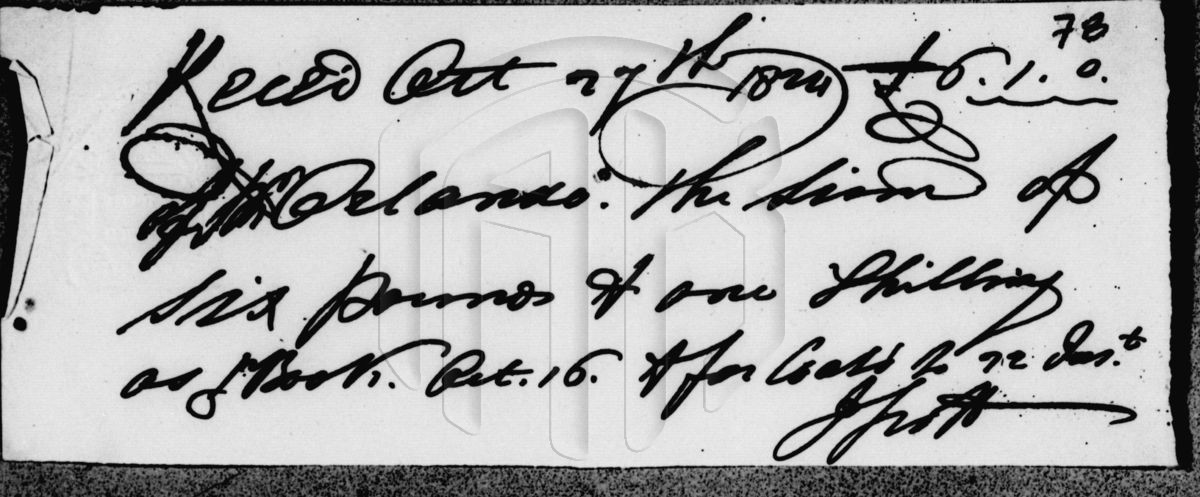 78
Recd Oct 27th 1824 £6.1.0.
of Mr Orlando. The sum of
six pounds & one Shilling
as p Book. Oct. 16. & for to 22 Inst.
J Scott